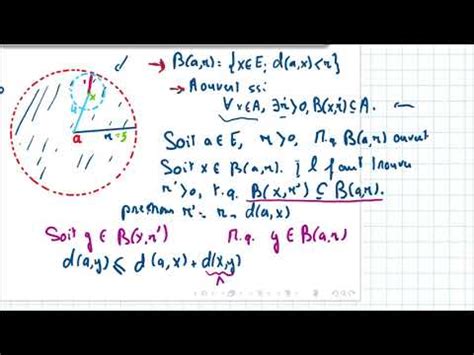 d → B(a,r) = {x∈E; d(a,x)<r}
→ A ouvert ssi
∀x∈A, ∃r>0, B(x,r)⊆A.
Soit a∈E, r>0, M.q B(a,r) ouvert
Soit x∈B(a,r). il faut trouver
r'>0, t.q. B(x,r')⊆B(a,r).
prenons r' = r - d(a,x)
Soit y∈B(x,r') M.q y∈B(a,r)
d(a,y) ≤ d(a,x) + d(x,y)
x
4
a
r=5